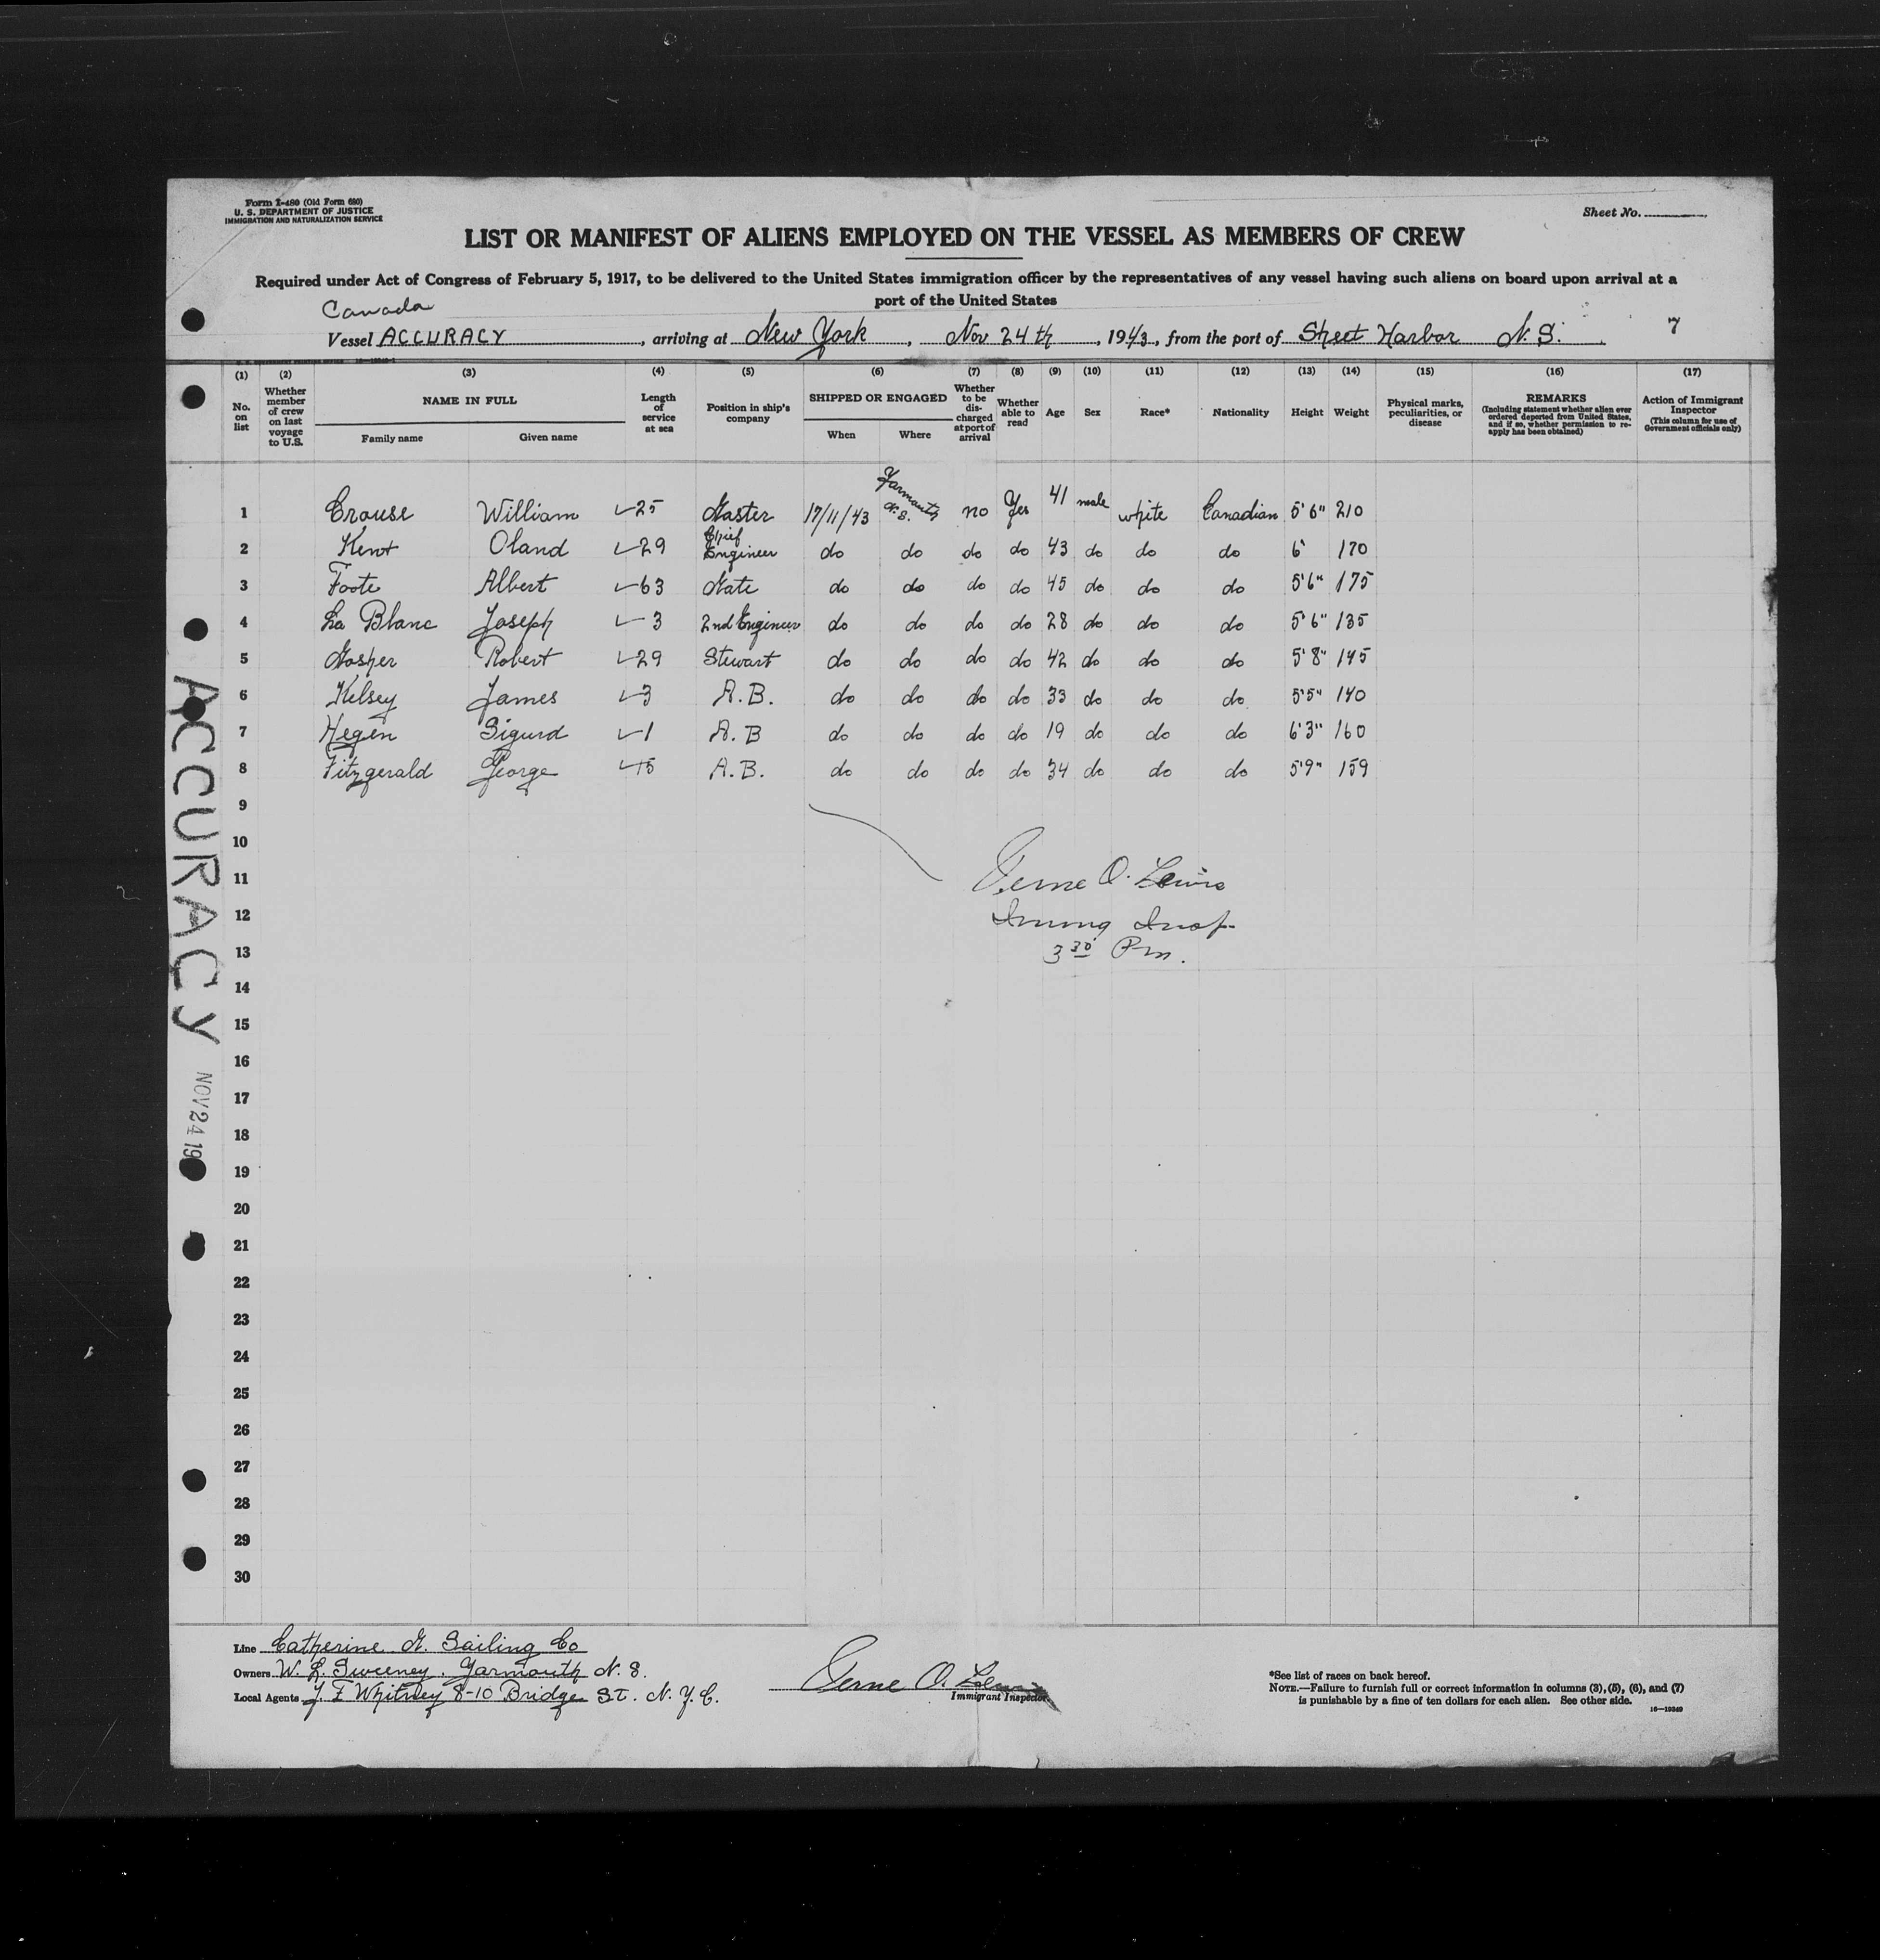 Form I-480 (Old Form 680)
U. S. DEPARTMENT OF JUSTICE
IMMIGRATION AND NATURALIZATION SERVICE
Sheet No.
LIST OR MANIFEST OF ALIENS EMPLOYED ON THE VESSEL AS MEMBERS OF CREW
Required under Act of Congress of February 5, 1917, to be delivered to the United States immigration officer by the representatives of any vessel having such aliens on board upon arrival at a
port of the United States
Canada
Vessel ACCURACY, arriving at New York, Nov 24th, 1943, from the port of Sheet Harbor N.S. 7
(1) (2) (3) (4) (5) (6) (7) (8) (9) (10) (11) (12) (13) (14) (15) (16) (17)
No. on list
Whether member of crew on last voyage to U.S.
NAME IN FULL
Family name Given name
Length of service at sea
Position in ship's company
SHIPPED OR ENGAGED
When Where
Whether to be discharged at port of arrival
Whether able to read
Age Sex Race* Nationality Height Weight
Physical marks, peculiarities, or disease
REMARKS
(Including statement whether alien ever ordered deported from United States, and if so, whether permission to reapply has been obtained)
Action of Immigrant Inspector
(This column for use of Government officials only)
1 Crouse William 25 Master 17/11/43 Yarmouth N.S. no Yes 41 male white Canadian 5'6" 210
2 Kent Oland 29 Chief Engineer do do do do 43 do do do 6' 170
3 Foote Albert 63 Mate do do do do 45 do do do 5'6" 175
4 La Blanc Joseph 3 2nd Engineer do do do do 28 do do do 5'6" 135
5 Mosher Robert 29 Stewart do do do do 42 do do do 5'8" 145
6 Kelsey James 3 A.B. do do do do 33 do do do 5'5" 140
7 Hegen Sigurd 1 A.B do do do do 19 do do do 6'3" 160
8 Fitzgerald George 15 A.B. do do do do 34 do do do 5'9" 159
9
10
11
12
13
14
15
16
17
18
19
20
21
22
23
24
25
26
27
28
29
30
Verne O. Lewis
Immig Insp.
3 30 Pm.
ACCURACY
NOV 24 19
Line Catherine M. Sailing Co
Owners W. L. Sweeney. Yarmouth N.S.
Local Agents J. F Whitney 8-10 Bridge St. N.Y.C.
Verne O. Lewis
Immigrant Inspector.
*See list of races on back hereof.
NOTE.—Failure to furnish full or correct information in columns (3), (5), (6), and (7)
is punishable by a fine of ten dollars for each alien. See other side.
16—19349